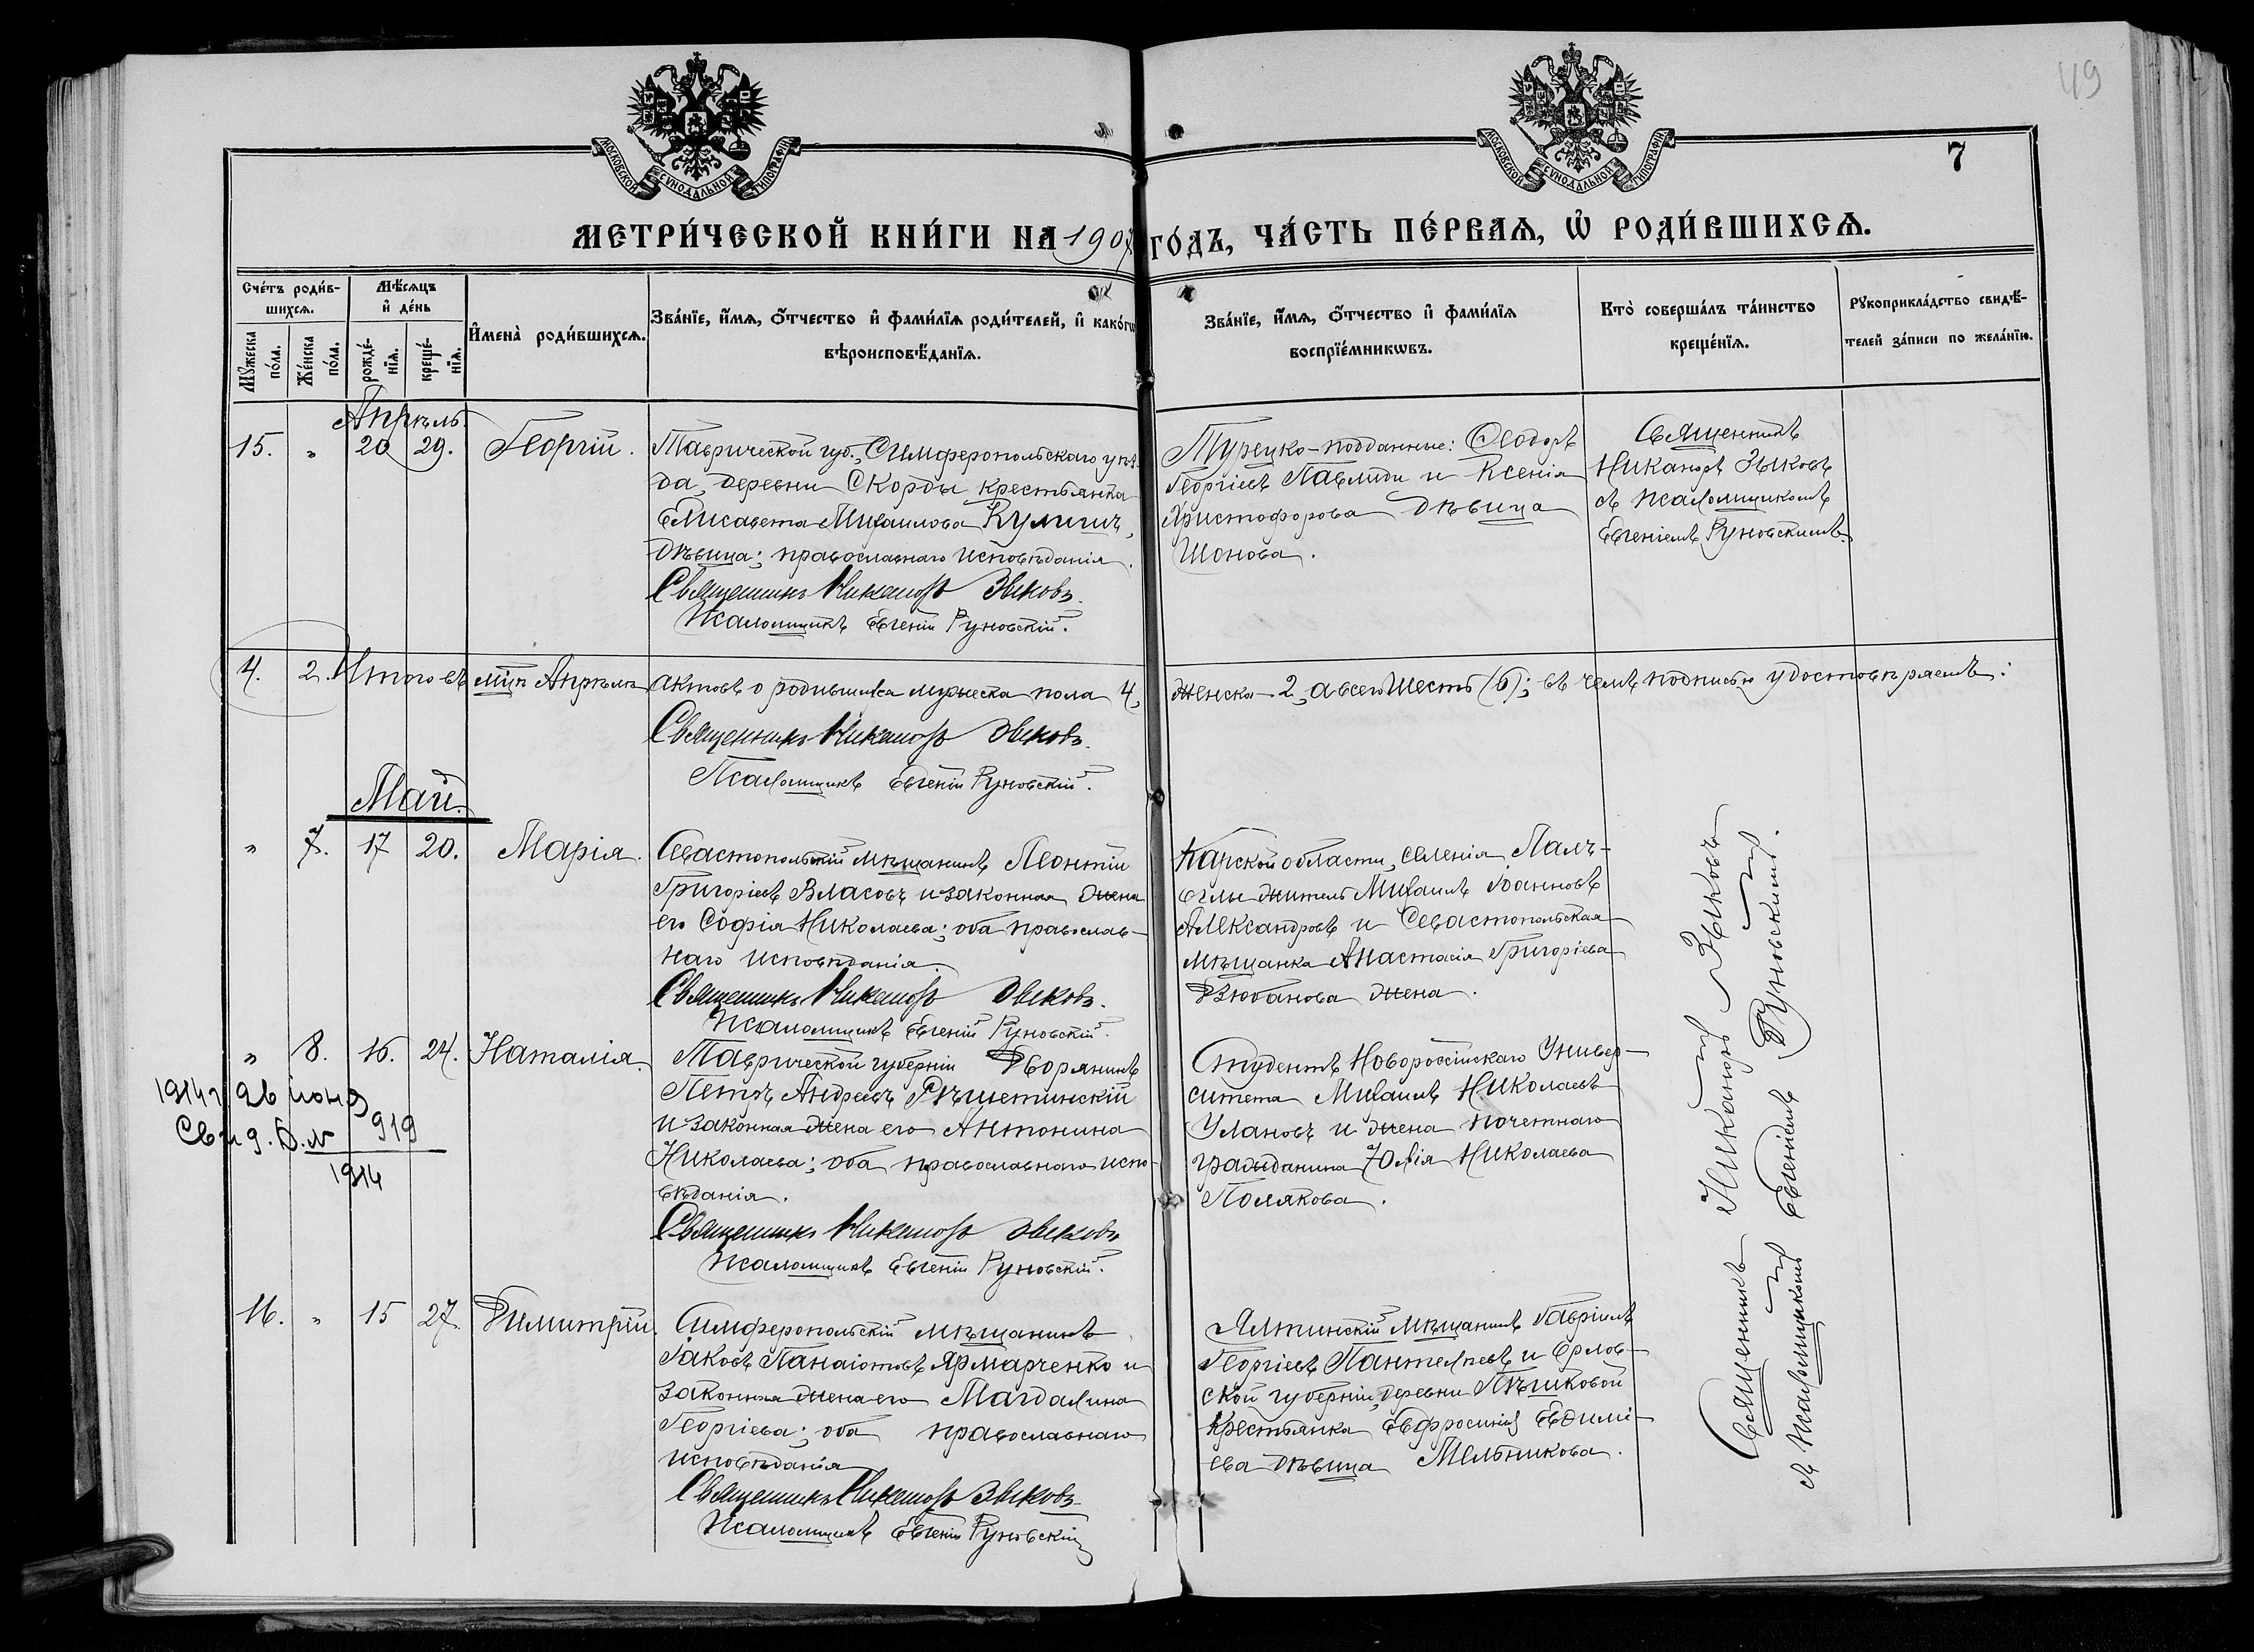 49
7
МОСКОВСКОЙ СѴНОДАЛЬНОЙ ТИПОГРАФІИ
МОСКОВСКОЙ СѴНОДАЛЬНОЙ ТИПОГРАФІИ
МЕТРИ́ЧЕСКОЙ КНИ́ГИ НА 1907 ГО́ДЪ, ЧА́СТЬ ПЕ́РВАѦ, Ѡ҆ РОДИ́ВШИХСѦ.
Сче́тъ роди́в-
шихсѧ.
Мѣ́сѧцъ
и҆ де́нь
Мꙋ́жеска
по́ла.
Же́нска
по́ла.
рожде́-
нїѧ.
креще́-
нїѧ.
И҆мена̀ роди́вшихсѧ.
Зва́нїе, и҆́мѧ, ѻ҆́тчество и҆ фами́лїѧ роди́телей, и҆ како́гѡ
вѣроисповѣ́данїѧ.
Зва́нїе, и҆́мѧ, ѻ҆́тчество и҆ фами́лїѧ
воспрїе́мникѡвъ.
Кто̀ соверша́лъ та́инство
креще́нїѧ.
Рꙋкоприкла́дство свидѣ́-
телей за́писи по жела́нїю.
Апрѣль.
15. " 20 29. Георгій.
Таврической губ., Симферопольскаго уѣз-
да, деревни Скорды крестьянка
Елисавета Михаилова Кулишъ,
дѣвица; православнаго исповѣданія.
Священникъ Никаноръ Зыковъ.
Псаломщикъ Евгеній Руновскій.
Турецко-подданные: Ѳеодоръ
Георгіевъ Павлиди и Ксенія
Христофорова дѣвица
Шонова.
Священникъ
Никаноръ Зыковъ
съ псаломщикомъ
Евгеніемъ Руновскимъ.
4. 2. Итого въ мцѣ Апрѣлѣ актовъ о родившихся мужеска пола 4, женска 2, а всего шесть (6); въ чемъ подписью удостовѣряемъ:
Священникъ Никаноръ Зыковъ.
Псаломщикъ Евгеній Руновскій.
Май.
" 7. 17 20. Марія.
Севастопольскій мѣщанинъ Леонтій
Григоріевъ Власовъ и законная жена
его Софія Николаева; оба православ-
наго исповѣданія.
Священникъ Никаноръ Зыковъ.
Псаломщикъ Евгеній Руновскій.
Карской области, селенія
житель Михаилъ Іоанновъ
Александровъ и Севастопольская
мѣщанка Анастасія Григоріева
Дзюбанова жена.
" 8. 16. 24. Наталія.
1914 г. 26 іюня
Свид. В. № 919
1914
Таврической губерніи Дворянинъ
Петръ Андреевъ Рѣшетинскій
и законная жена его Антонина
Николаева; оба православнаго испо-
вѣданія.
Священникъ Никаноръ Зыковъ
Псаломщикъ Евгеній Руновскій.
Студентъ Новороссійскаго Универ-
ситета Михаилъ Николаевъ
Улановъ и жена почетнаго
гражданина Юлія Николаева
Полякова.
16. " 15 27. Димитрій.
Симферопольскій мѣщанинъ
Іаковъ Панаіотовъ Ярмарченко и
законная жена его Магдалина
Георгіева; оба православнаго
исповѣданія
Священникъ Никаноръ Зыковъ
Псаломщикъ Евгеній Руновскій
Ялтинскій мѣщанинъ Гавріилъ
Георгіевъ Пантелѣевъ и Орлов-
ской губерніи, деревни Пѣшковой
крестьянка Евфросинія Евдими-
ева дѣвица Мельникова.
Священникъ Никаноръ Зыковъ
съ псаломщикомъ Евгеніемъ Руновскимъ.